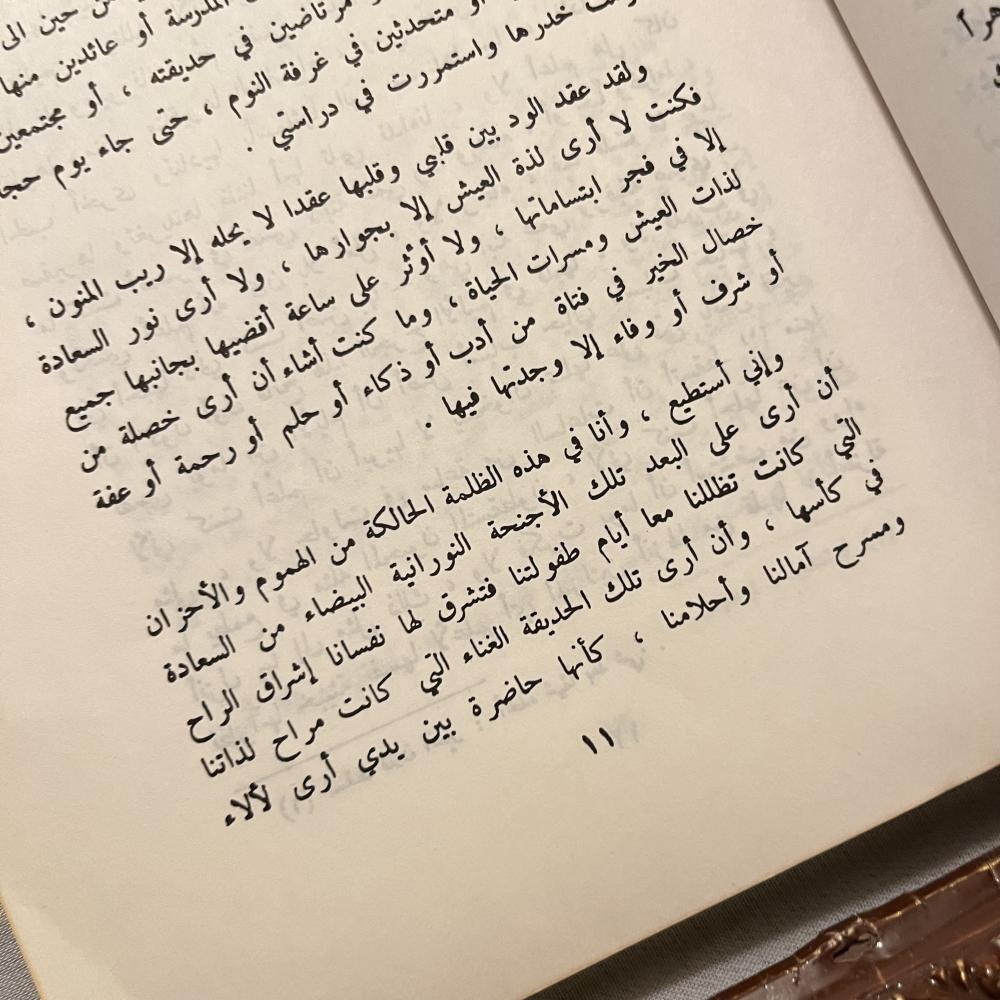 حين الى
المدرسة أو عائدين منها
مرتاضين في حديقته ، أو مجتمعين
أو متحدثين في غرفة النوم ، حتى جاء يوم
خدرها واستمررت في دراستي .
ولقد عقد الود بين قلبي وقلبها عقدا لا يحله إلا ريب المنون ،
فكنت لا أرى لذة العيش إلا بجوارها ، ولا أرى نور السعادة
إلا في فجر ابتساماتها ، ولا أوثر على ساعة أقضيها بجانبها جميع
لذات العيش ومسرات الحياة ، وما كنت أشاء أن أرى خصلة من
خصال الخير في فتاة من أدب أو ذكاء أو حلم أو رحمة أو عفة
أو شرف أو وفاء إلا وجدتها فيها .
وإني أستطيع ، وأنا في هذه الظلمة الحالكة من الهموم والأحزان
أن أرى على البعد تلك الأجنحة النورانية البيضاء من السعادة
التي كانت تظللنا معا أيام طفولتنا فتشرق لها نفسانا إشراق الراح
في كأسها ، وأن أرى تلك الحديقة الغناء التي كانت مراح لذاتنا
ومسرح آمالنا وأحلامنا ، كأنها حاضرة بين يدي أرى لألاء
١١